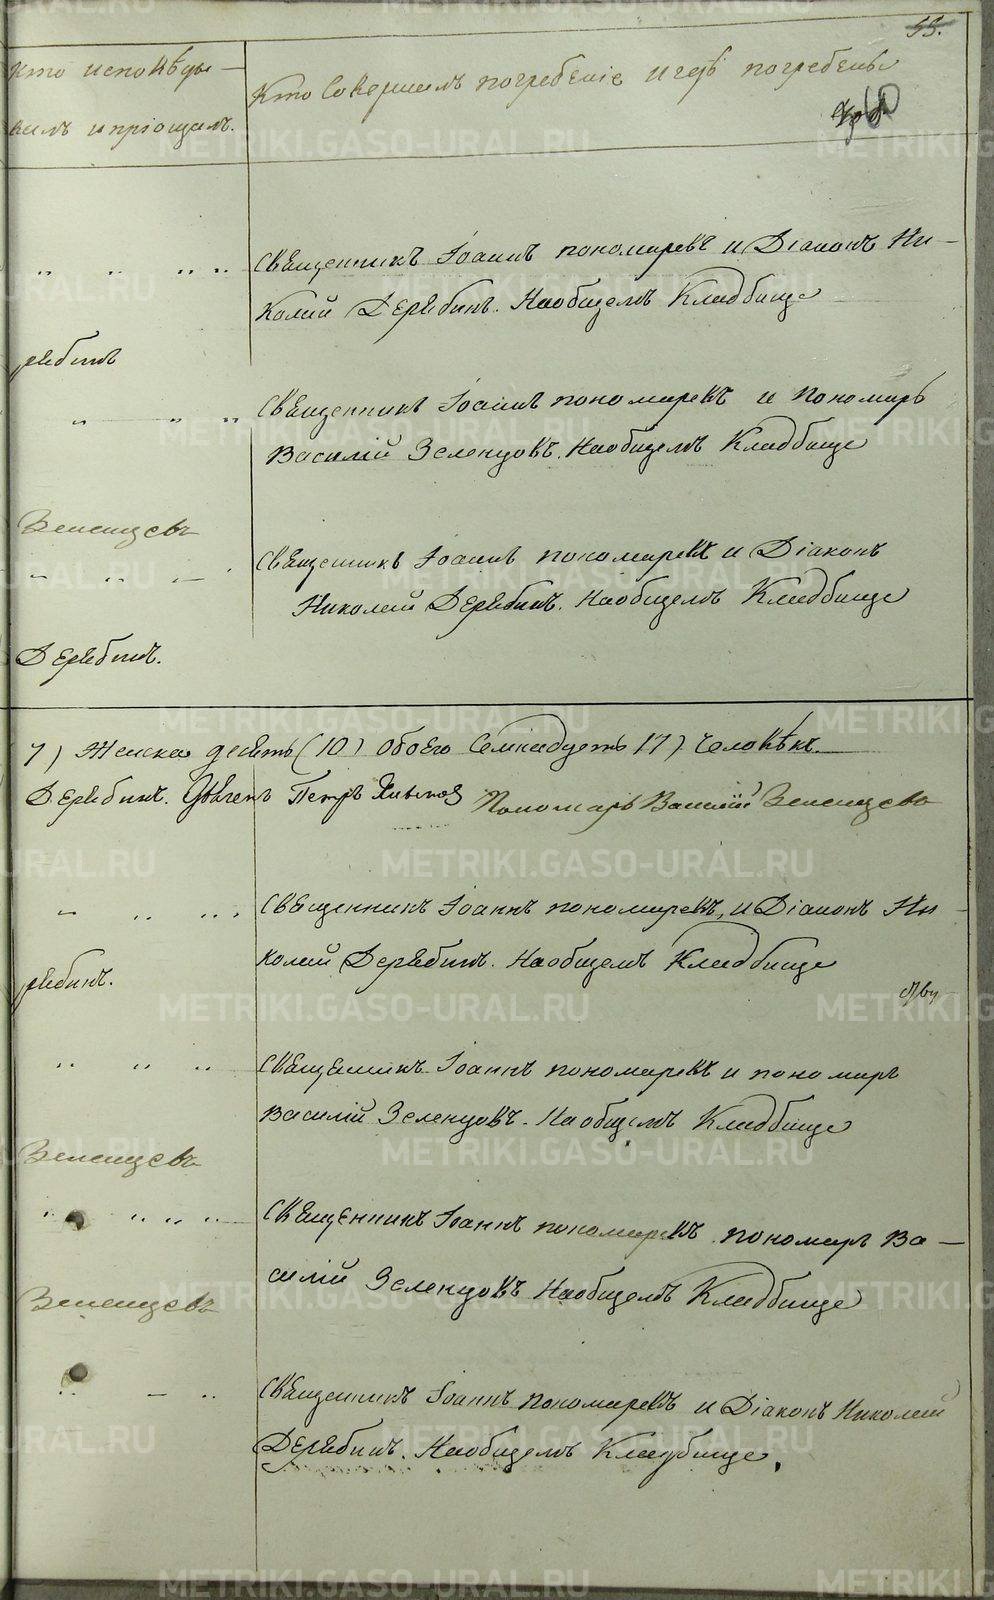 55.
Кто исповѣды-
валъ и пріощалъ.
Кто совершалъ погребеніе и гдѣ погребены
60
Священникъ Іоаннъ пономаревъ и Діаконъ Ни-
колай Дерябинъ. На общемъ Кладбище
рябинъ
Священникъ Іоаннъ пономаревъ и Пономарь
Василій Зеленцовъ. На общемъ Кладбище
Зеленцевъ
Священникъ Іоаннъ пономаревъ и Діаконъ
Николай Дерябинъ. На общемъ Кладбище
Дерябинъ.
7) Женска десять (10) обоего Семнадцеть 17) человѣкъ.
Дерябинъ. Петръ Пономарь Василій Зеленцевъ
Священникъ Іоаннъ пономаревъ, и Діаконъ Ни-
колай Дерябинъ. На общемъ Кладбище
рябинъ.
Священникъ Іоаннъ пономаревъ и пономарь
Василій Зеленцовъ. На общемъ Кладбище
Зеленцевъ
Священникъ Іоаннъ пономаревъ пономарь Ва-
силій Зеленцовъ На общемъ Кладбище
Зеленцевъ
Священникъ Іоаннъ пономаревъ и Діаконъ Николай
Дерябинъ. На общемъ Кладбище.
METRIKI.GASO-URAL.RU